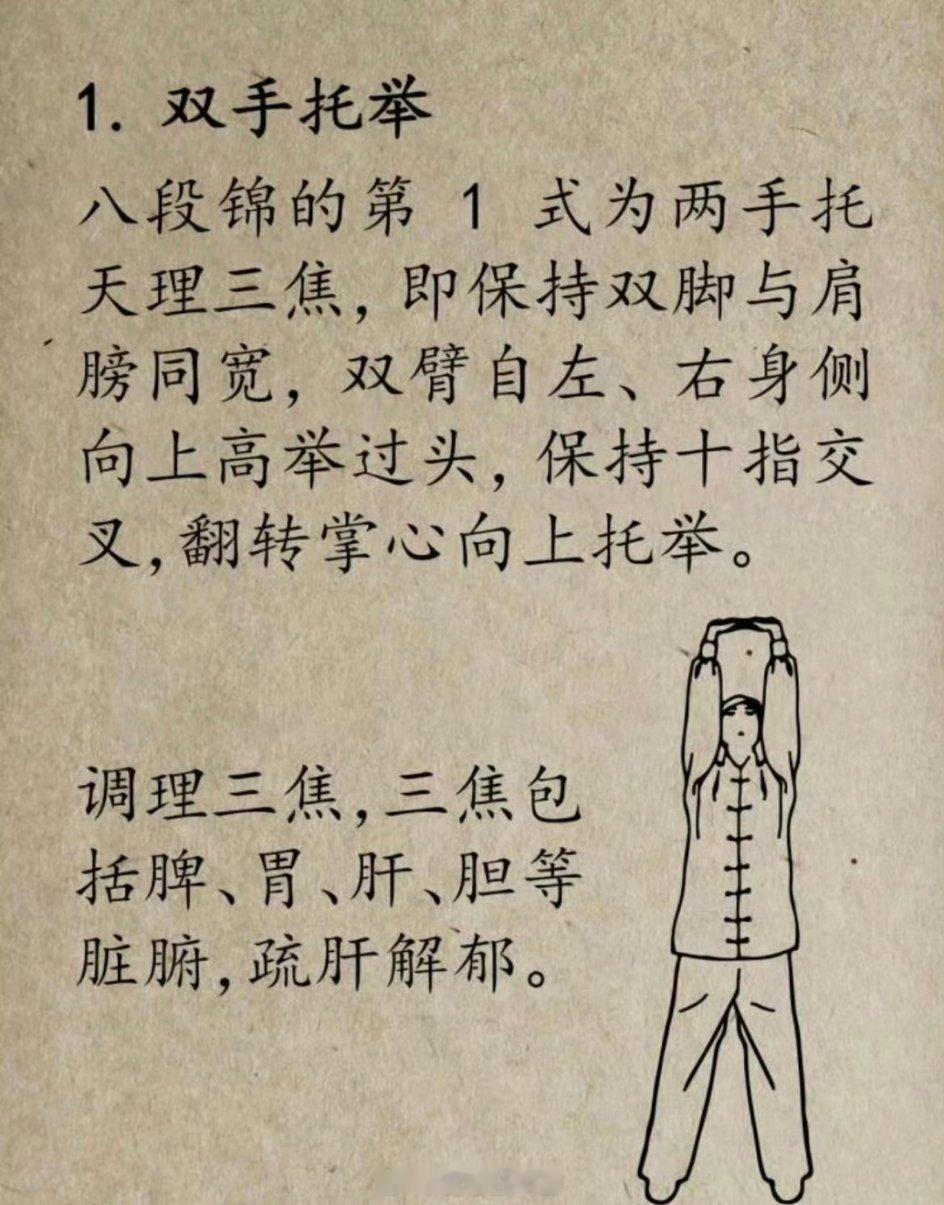 1. 双手托举
八段锦的第 1 式为两手托
天理三焦,即保持双脚与肩
膀同宽,双臂自左、右身侧
向上高举过头,保持十指交
叉,翻转掌心向上托举。
调理三焦,三焦包
括脾、胃、肝、胆等
脏腑,疏肝解郁。